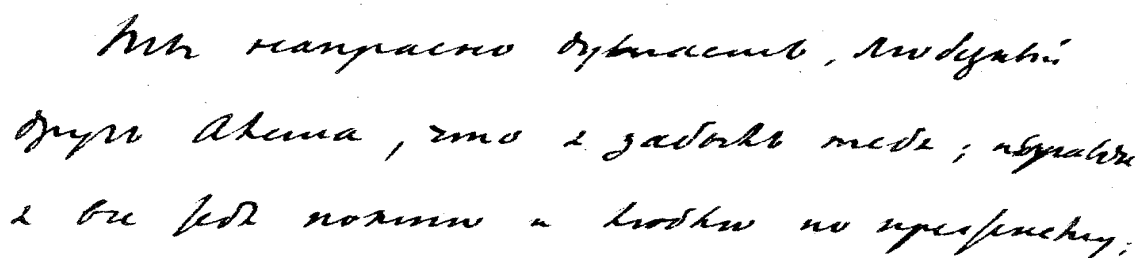 Ты напрасно думаешь, любезный
другъ Акеша, что я забылъ тебя; право
я все тебя помню и люблю по прежнему;